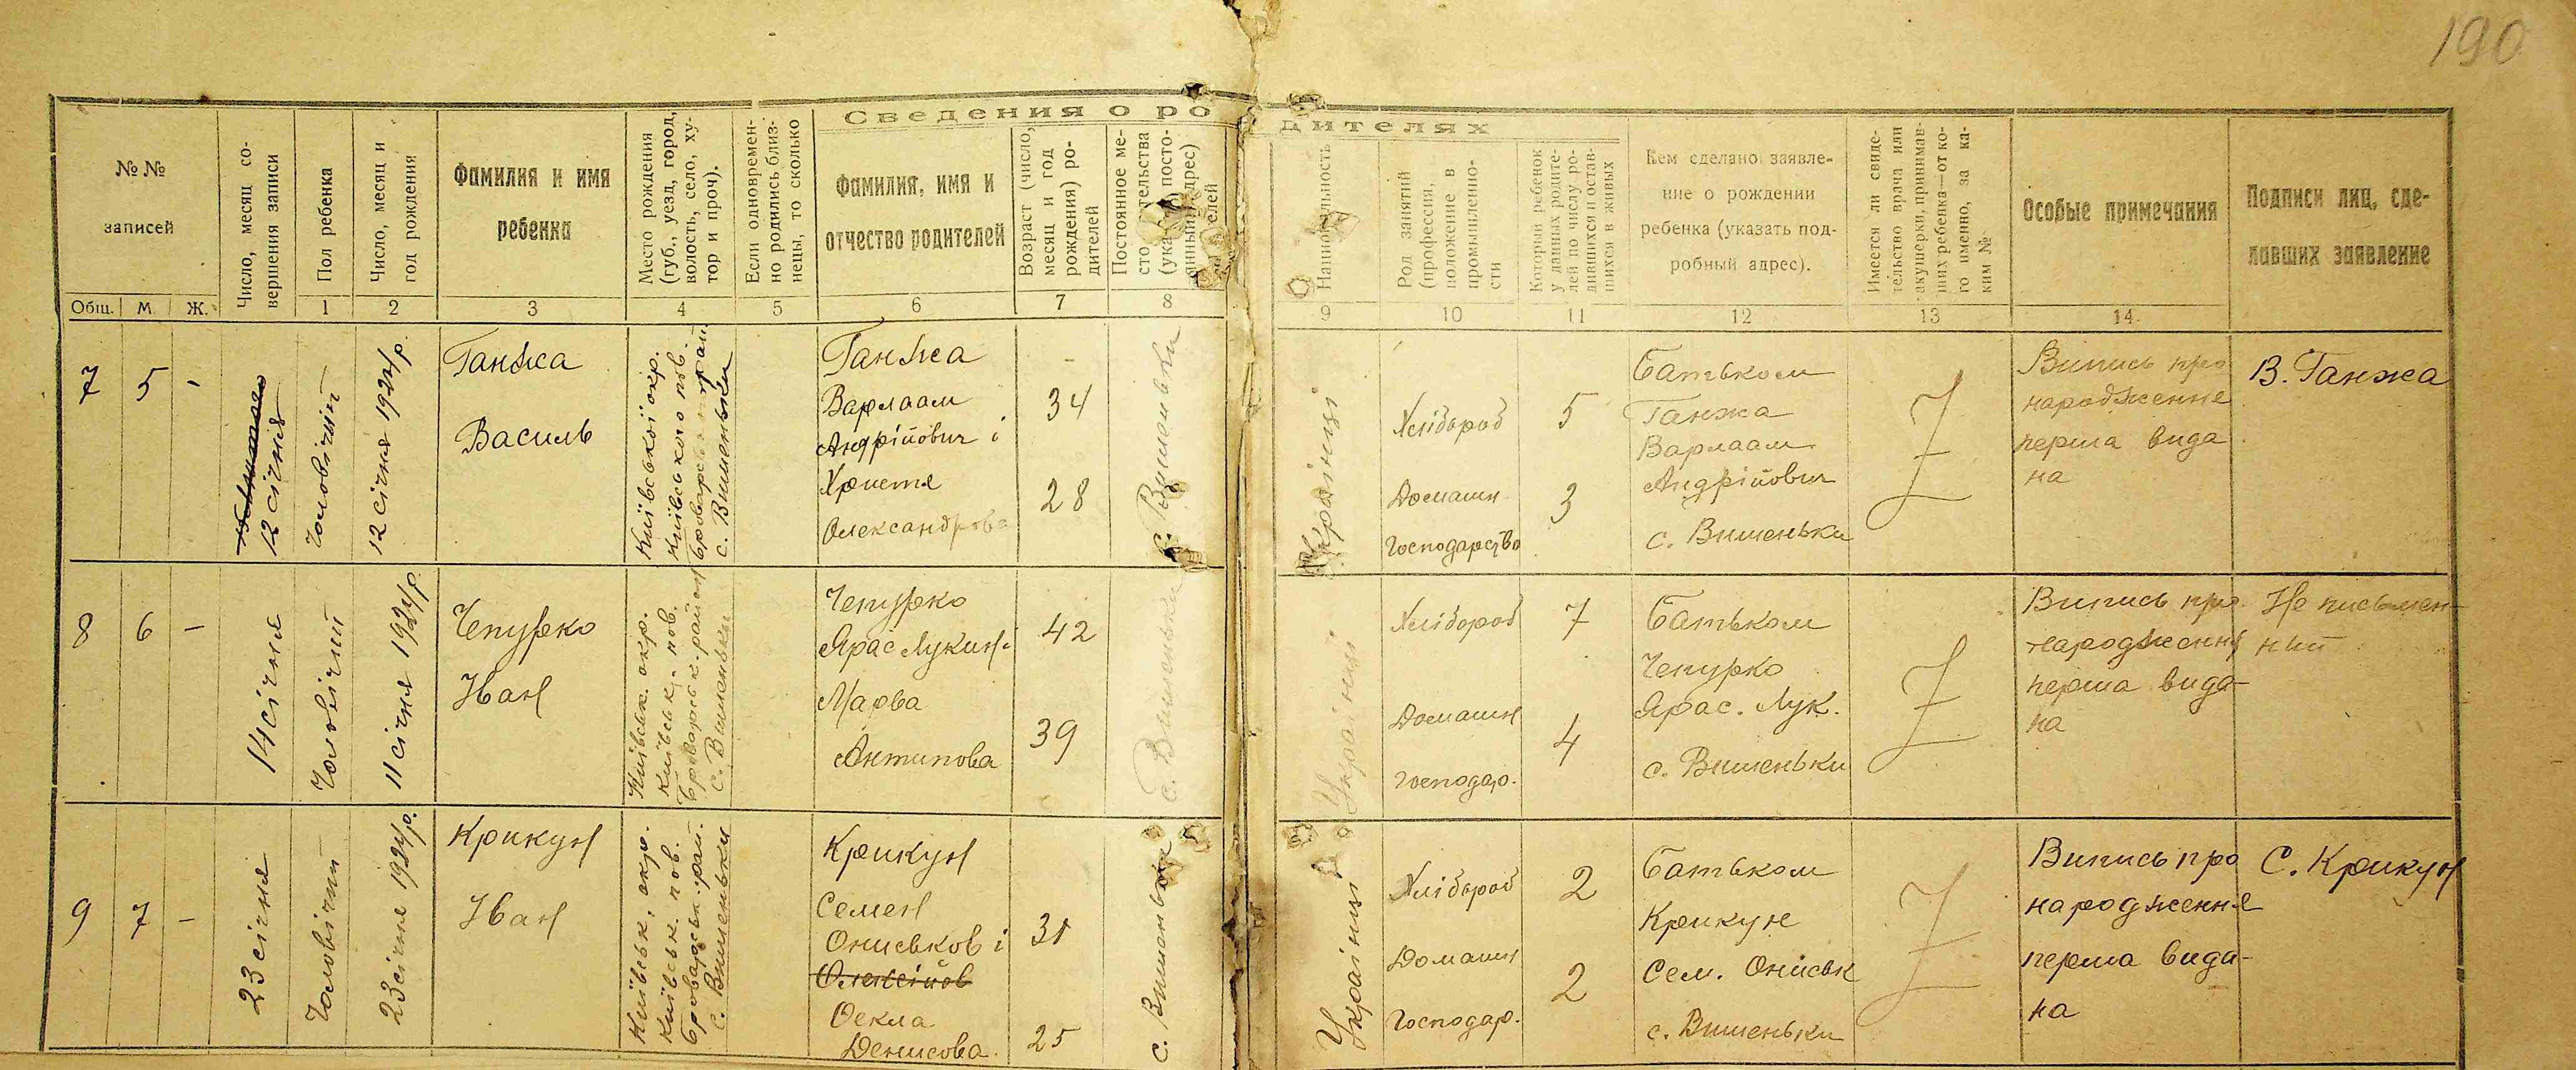 190
Сведения о ро
дителях
№ №
записей
Общ.
М.
Ж.
Число, месяц со-
вершения записи
Пол ребенка
1
Число, месяц и
год рождения
2
Фамилия и имя
ребенка
3
Место рождения
(губ., уезд, город,
волость, село, ху-
тор и проч).
4
Если одновремен-
но родились близ-
нецы, то сколько
5
Фамилия, имя и
отчество родителей
6
Возраст (число,
месяц и год
рождения) ро-
дителей
7
Постоянное ме-
сто
8
Национальность
9
Род занятий
(профессия,
положение в
промышленно-
сти
10
Который ребенок
у данных родите-
лей по числу ро-
дившихся и остав-
шихся в живых
11
Кем сделано заявле-
ние о рождении
ребенка (указать под-
робный адрес).
12
Имеется ли свиде-
тельство врача или
акушерки, принимав-
ших ребенка—от ко-
го именно, за ка-
ким №
13
Особые примечания
14
Подписи лиц, сде-
лавших заявление
7
5
-
12 січня
Чоловічий
12 січня 1924 р.
Ганжа
Василь
Київської окр.
Київського пов.
Броварськ
с. Вишеньки
Ганжа
Варлаам
Андрійович і
Христя
Олександрова
34
28
с. Вишеньки
Українці
Хлібороб
Домашн
Господарство
5
3
Батьком
Ганжа
Варлаам
Андрійович
с. Вишеньки
Випись про
народження
перша вида
на
В. Ганжа
8
6
-
14 січня
Чоловічий
11 січня 1924 р.
Чепурко
Иван
Київськ. окр.
Київськ. пов.
Броварськ. район
с. Вишеньки
Чепурко
Ярас Лукин і
Марва
Антипова
42
39
с. Вишеньки
Українці
Хлібороб
Домашн
Господар.
7
4
Батьком
Чепурко
Ярас. Лук.
с. Вишеньки
Випись про
народження
перша вида-
на
Не письмен-
ний
9
7
-
23 січня
Чоловічий
23 січня 1924 р.
Крикун
Иван
Київськ. окр.
Київськ. пов.
Броварськ. рай.
с. Вишеньки
Крикун
Семен
Ониськов і
Олексійов
Оекла
Денисова.
31
25
с. Вишеньки
Українці
Хлібороб
Домашн
Господар.
2
2
Батьком
Крикун
Сем. Ониськ
с. Вишеньки
Випись про
народження
перша вида-
на
С. Крикун